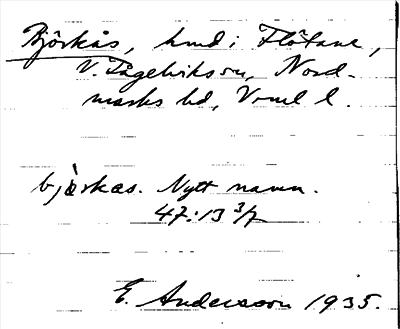 Björkås, hmd i Flötane,
V. Fågelvik sn, Nord-
marks hd, Vrml l.
bjö̀rkas. Nytt namn.
47:13 3/7
E. Andersson 1935.